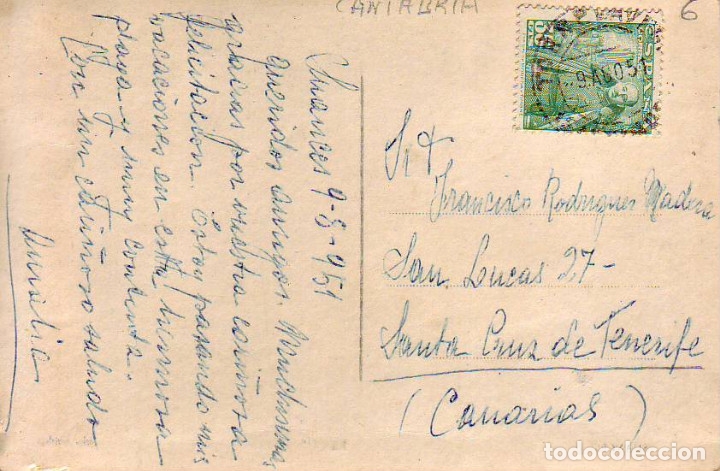 CANTABRIA
6
Suances 9-8-951
Queridos amigos. Muchisimas
gracias por vuestra cariñosa
felicitacion. Estoy pasando mis
vacaciones en esta hermosa
playa y muy contenta.
Con un cariñoso saludo
9 AGO 51
Francisco Rodrigues Madera
San Lucas 27-
Santa Cruz de Tenerife
(Canarias)
todocoleccion.net